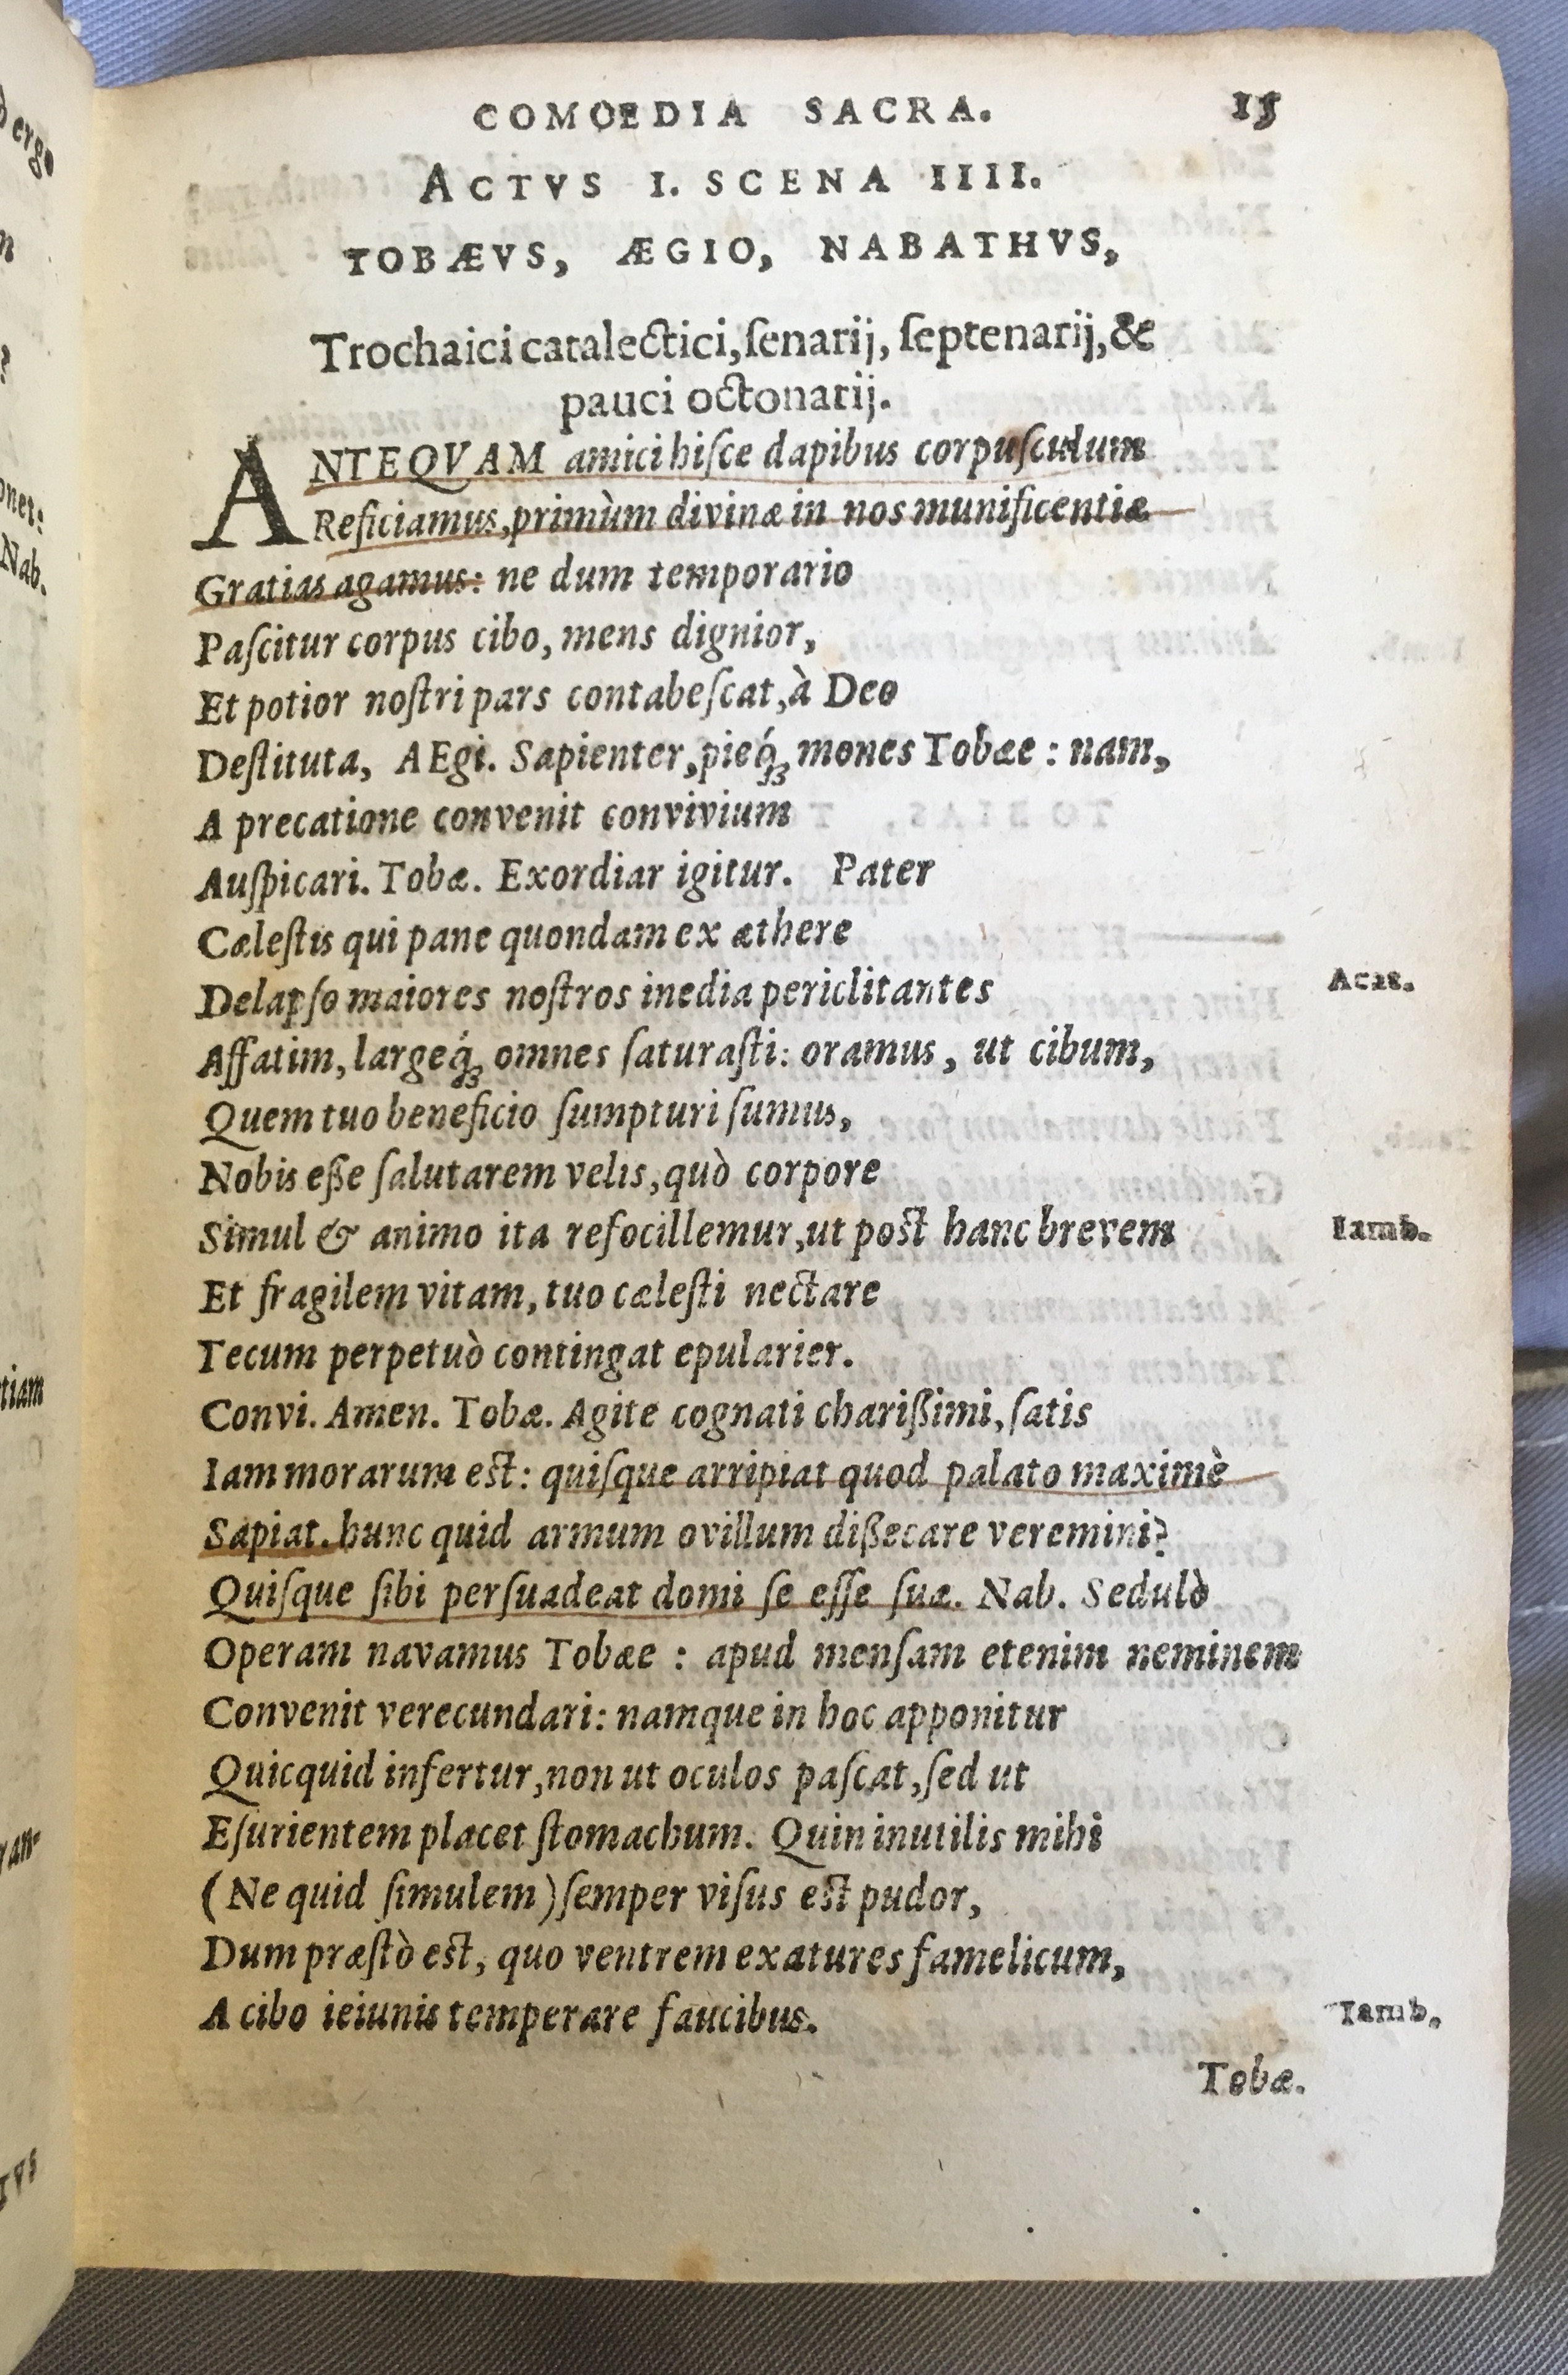 COMOEDIA SACRA. 15
ACTVS I. SCENA IIII.
TOBÆVS, ÆGIO, NABATHVS,
Trochaici catalectici, ſenarij, ſeptenarij, &
pauci octonarij.
ANTEQVAM amici hiſce dapibus corpuſculum
Reficiamus, primùm divinæ in nos munificentiæ
Gratias agamus: ne dum temporario
Paſcitur corpus cibo, mens dignior,
Et potior noſtri pars contabeſcat, à Deo
Deſtituta, AEgi. Sapienter, pieq́ꝫ mones Tobæe : nam,
A precatione convenit convivium
Auſpicari. Tobæ. Exordiar igitur. Pater
Cæleſtis qui pane quondam ex æthere
Delapſo maiores noſtros inedia periclitantes Acat.
Affatim, largeq́ꝫ omnes ſaturaſti: oramus, ut cibum,
Quem tuo beneficio ſumpturi ſumus,
Nobis eße ſalutarem velis, quò corpore
Simul & animo ita refocillemur, ut poſt hanc brevem Iamb.
Et fragilem vitam, tuo cæleſti nectare
Tecum perpetuò contingat epularier.
Convi. Amen. Tobæ. Agite cognati charißimi, ſatis
Iam morarum eſt: quiſque arripiat quod palato maximè
Sapiat. hunc quid armum ovillum dißecare veremini?
Quiſque ſibi perſuadeat domi ſe eſſe ſuæ. Nab. Sedulò
Operam navamus Tobæe : apud menſam etenim neminem
Convenit verecundari: namque in hoc apponitur
Quicquid infertur, non ut oculos paſcat, ſed ut
Eſurientem placet ſtomachum. Quin inutilis mihi
(Ne quid ſimulem) ſemper viſus eſt pudor,
Dum præſtò eſt, quo ventrem exatures famelicum,
A cibo ieiunis temperare faucibus. Iamb.
Tobæ.